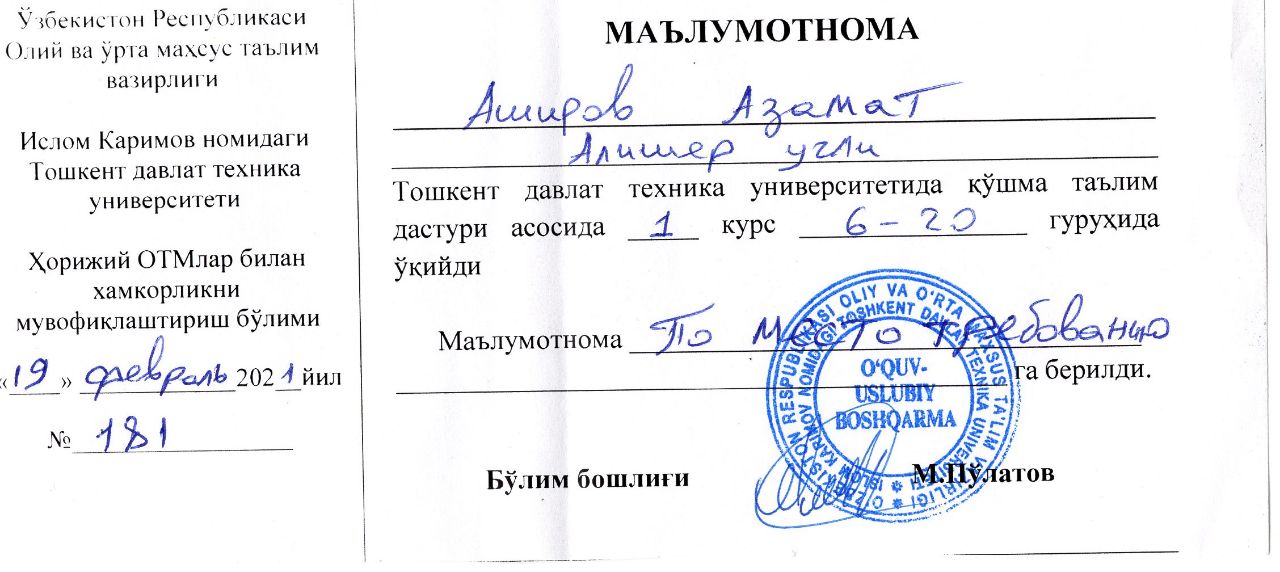 Ўзбекистон Республикаси
Олий ва ўрта махсус таълим
вазирлиги
Ислом Каримов номидаги
Тошкент давлат техника
университети
Ҳорижий ОТМлар билан
хамкорликни
мувофиқлаштириш бўлими
«19» февраль 2021 йил
№ 181
МАЪЛУМОТНОМА
Аширов Азамат
Алишер угли
Тошкент давлат техника университетида қўшма таълим
дастури асосида 1 курс 6-20 гуруҳида
ўқийди
Маълумотнома По место требованию
га берилди.
Бўлим бошлиғи М.Пўлатов
O‘ZBEKISTON RESPUBLIKASI OLIY VA O‘RTA MAXSUS TA'LIM VAZIRLIGI
ISLOM KARIMOV NOMIDAGI TOSHKENT DAVLAT TEXNIKA UNIVERSITETI
O‘QUV-
USLUBIY
BOSHQARMA